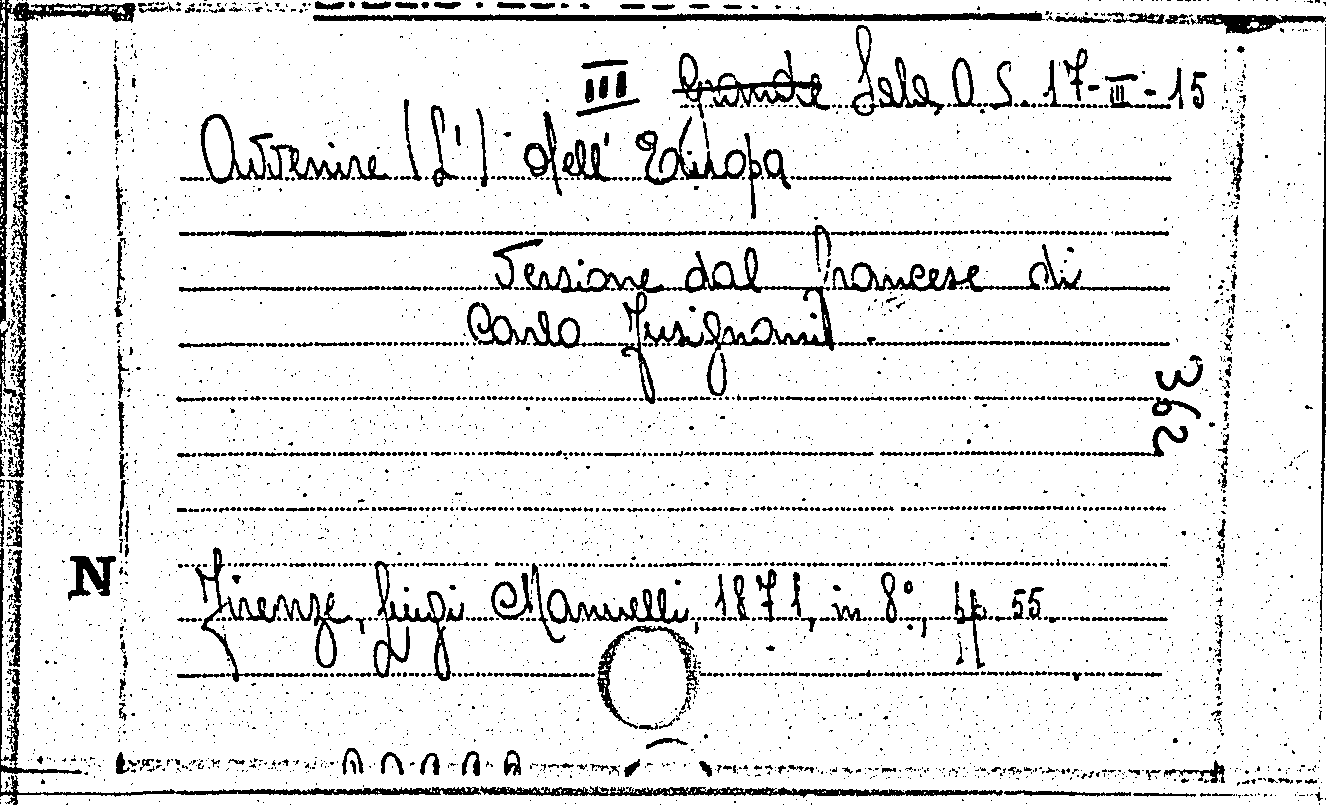 III Grande Sala O. S. 17-III-15
Avvenire (L') dell' Europa
Versione dal francese di
Carlo Fusignani.
362
N
Firenze, Luigi Mannelli, 1871, in 8°, pp. 55.